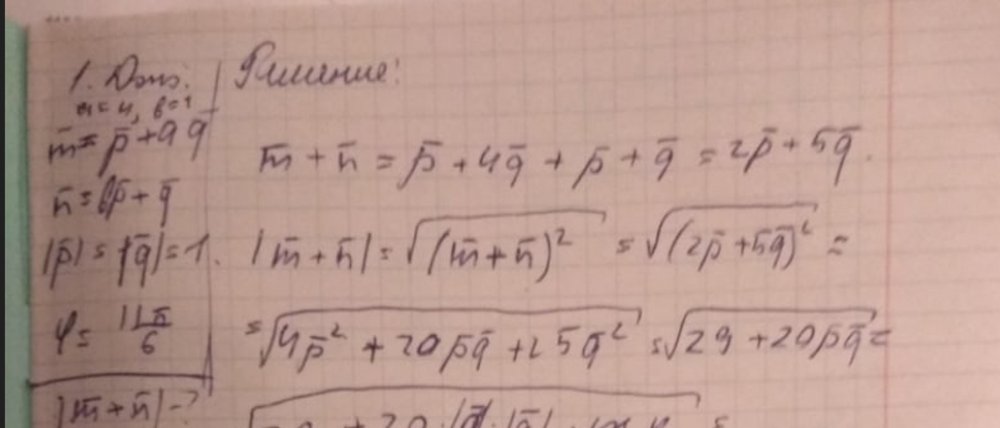 1. Дано:
a=4, b=1
m̄ = p̄ + aq̄
n̄ = bp̄ + q̄
|p̄| = |q̄| = 1.
φ = 11π/6
|m̄ + n̄| - ?
Решение:
m̄ + n̄ = p̄ + 4q̄ + p̄ + q̄ = 2p̄ + 5q̄.
|m̄ + n̄| = √(m̄ + n̄)² = √(2p̄ + 5q̄)² =
= √4p̄² + 20p̄q̄ + 25q̄² = √29 + 20p̄q̄ =